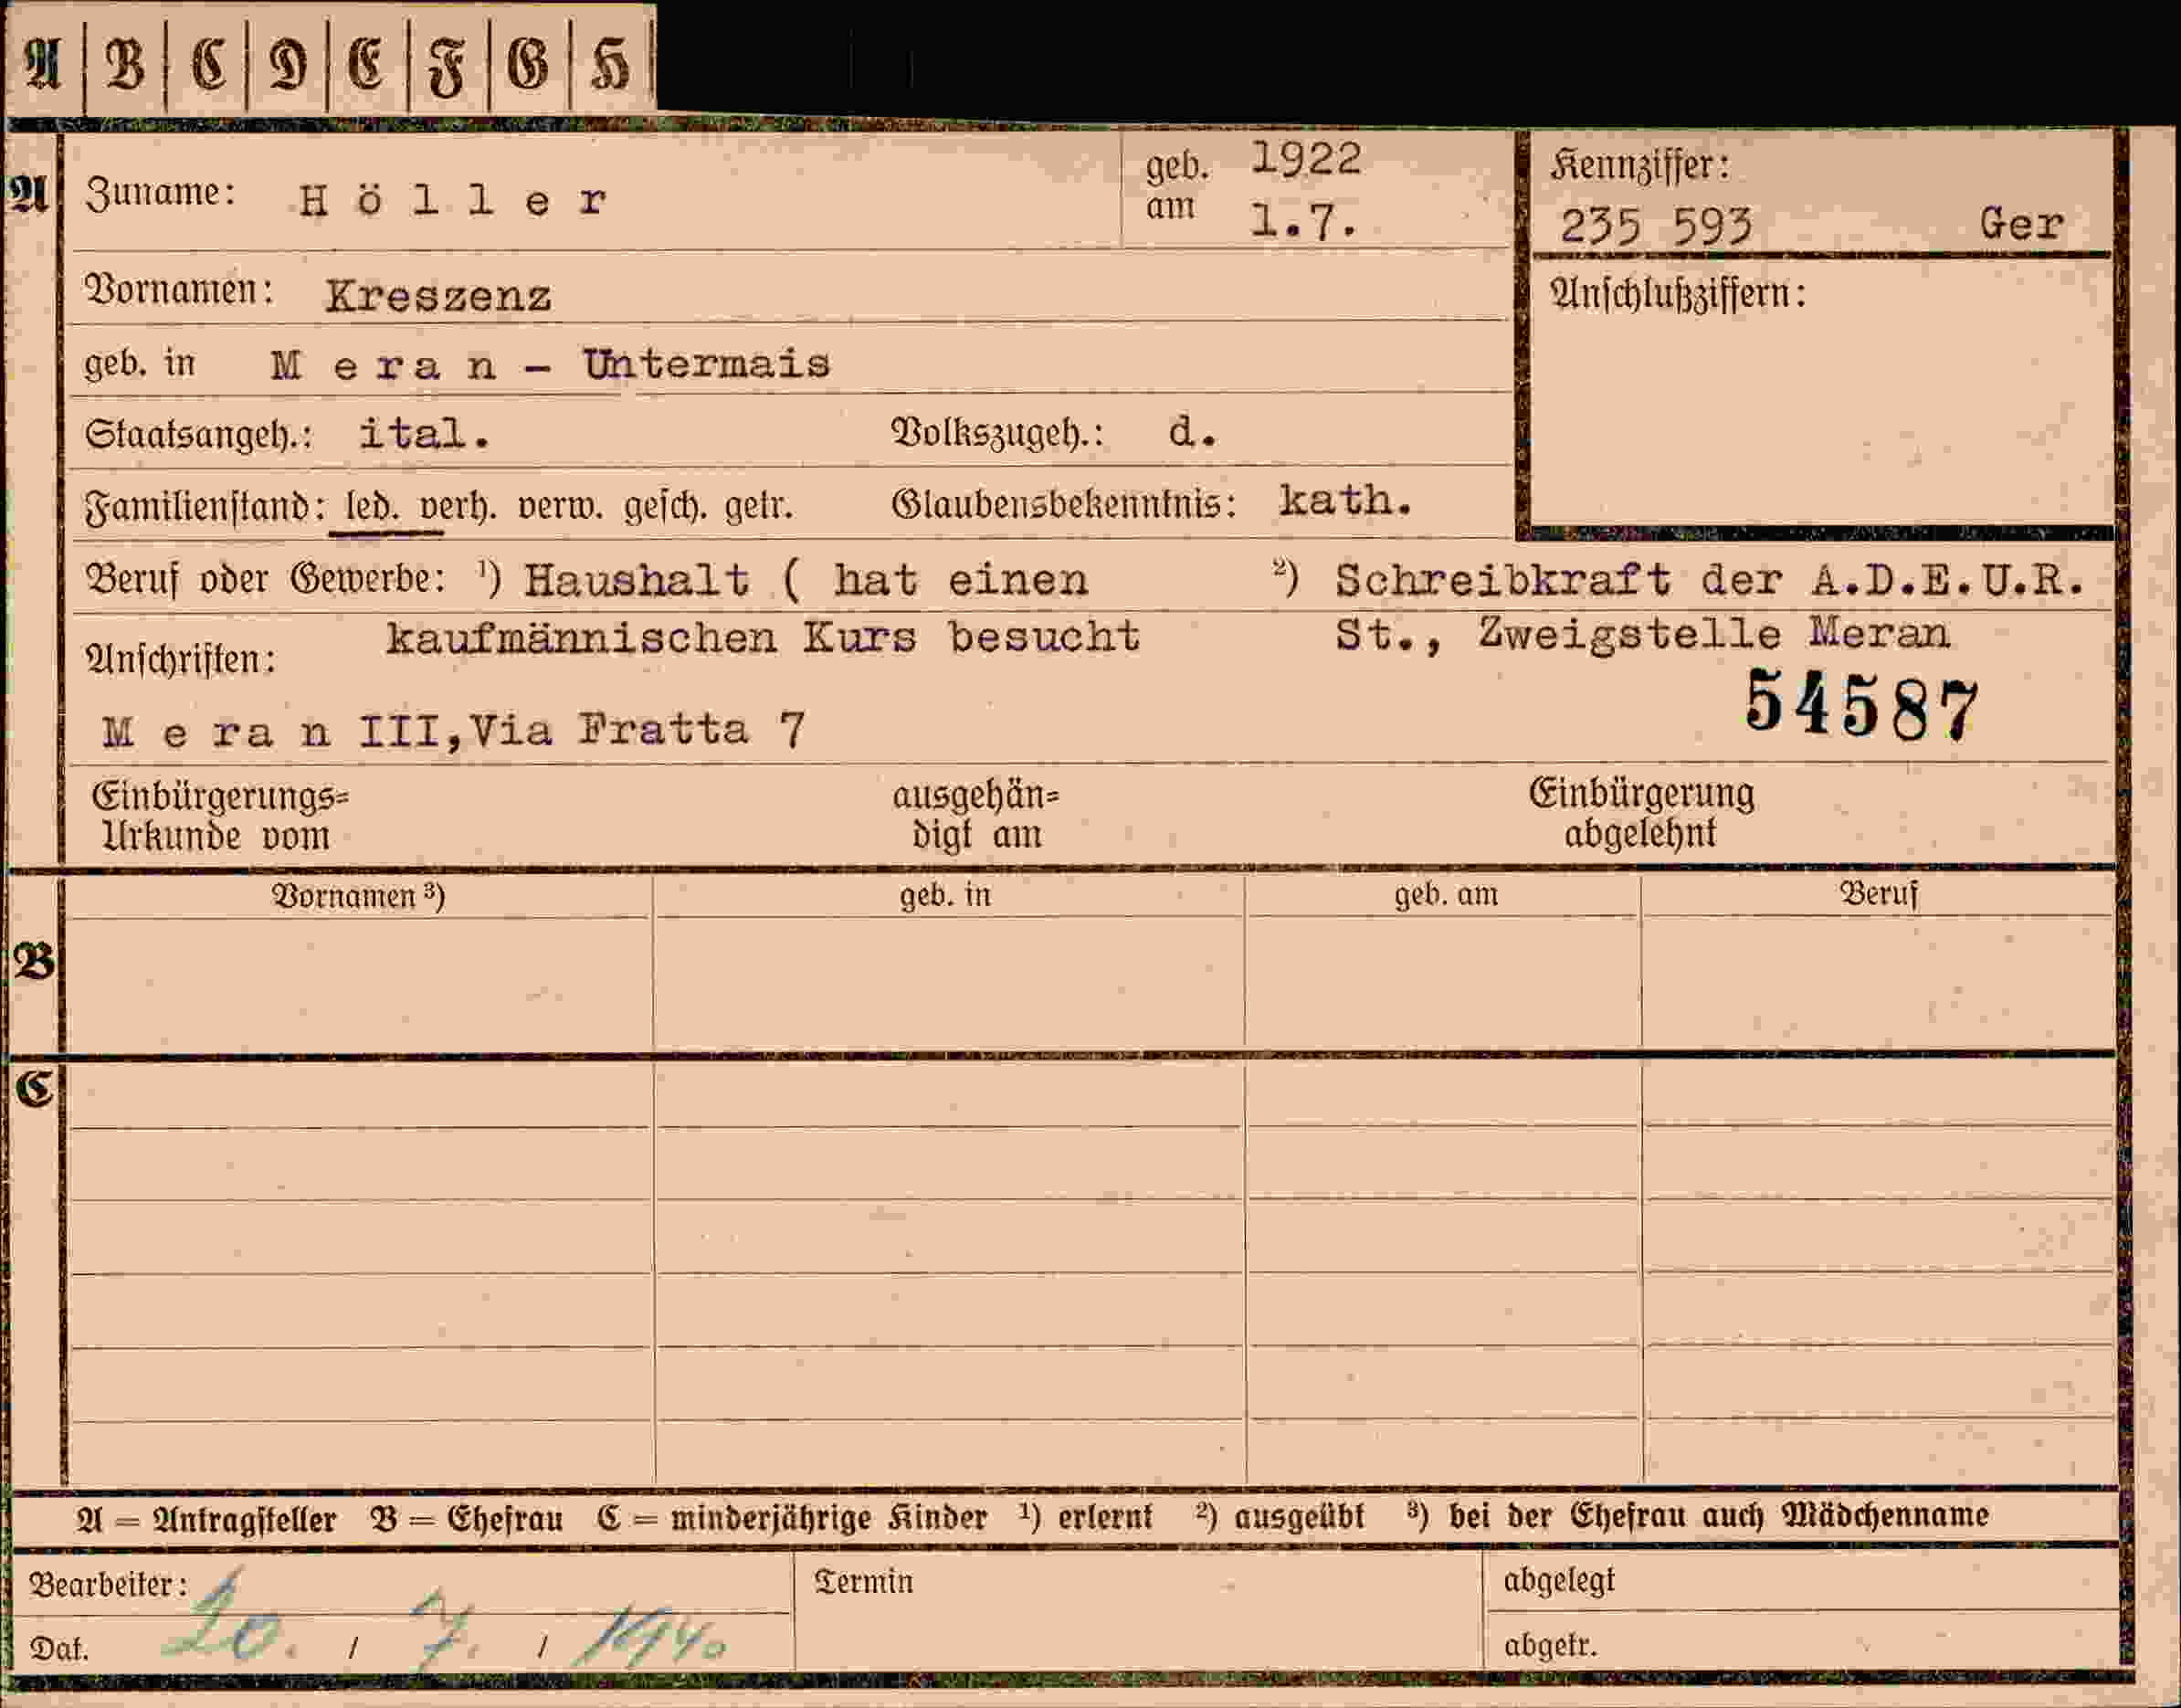 A | B | C | D | E | F | G | H
A Zuname: Höller geb. am 1922 1.7. Kennziffer:
235 593 Ger
Vornamen: Kreszenz Anschlußziffern:
geb. in Meran - Untermais
Staatsangeh.: ital. Volkszugeh.: d.
Familienstand: led. verh. verw. gesch. getr. Glaubensbekenntnis: kath.
Beruf oder Gewerbe: ¹) Haushalt ( hat einen ²) Schreibkraft der A.D.E.U.R.
kaufmännischen Kurs besucht St., Zweigstelle Meran
Anschriften:
54587
Meran III, Via Fratta 7
Einbürgerungs= ausgehän= Einbürgerung
Urkunde vom digt am abgelehnt
Vornamen ³) geb. in geb. am Beruf
B
C
A = Antragsteller B = Ehefrau C = minderjährige Kinder ¹) erlernt ²) ausgeübt ³) bei der Ehefrau auch Mädchenname
Bearbeiter: Termin abgelegt
Dat. 20. / 7. / 1940 abgetr.